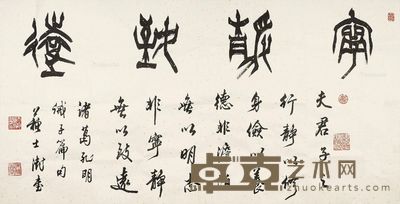 寧靜致遠
夫君子之
行靜以修
身儉以養
德非澹泊
無以明志
非寧靜
無以致遠
諸葛孔明
誡子篇句
蘇士澍書
艺术网
zhuokearts.com